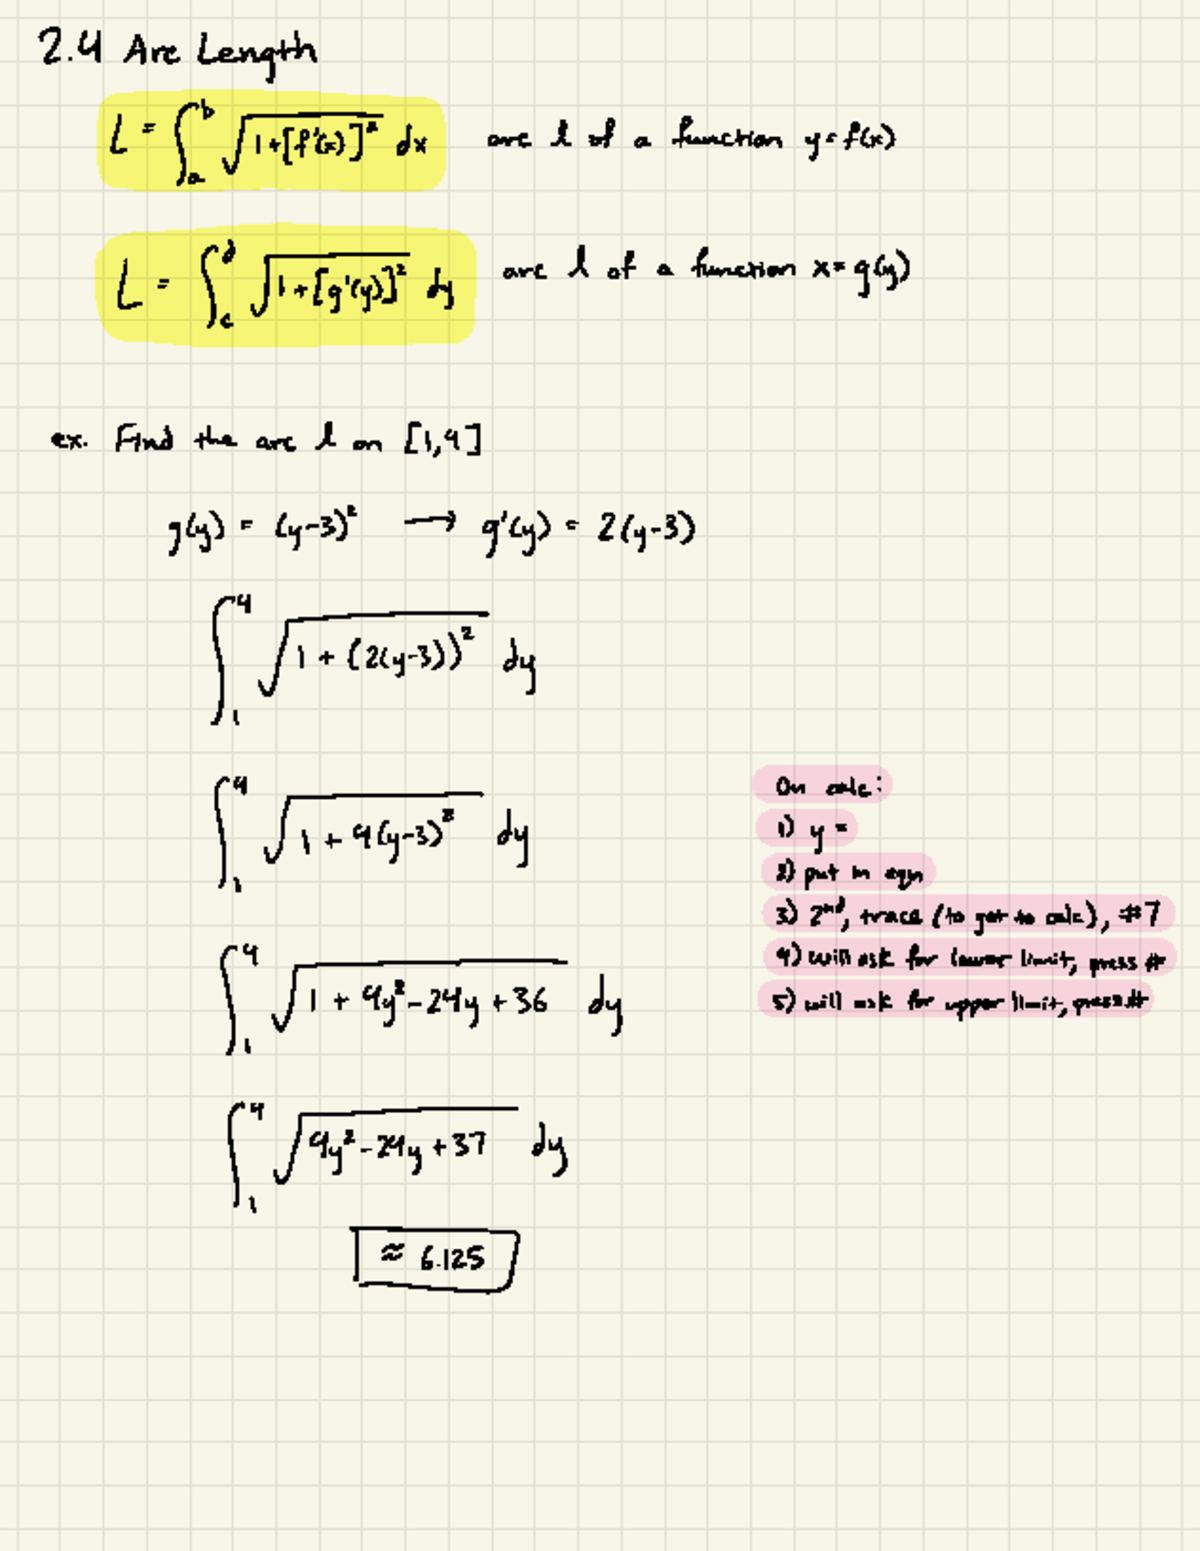 2.4 Arc Length
L = ∫_a^b √(1+[f'(x)]²) dx   arc l of a function y=f(x)
L = ∫_c^d √(1+[g'(y)]²) dy   arc l of a function x=g(y)
ex. Find the arc l on [1,4]
g(y) = (y-3)² → g'(y) = 2(y-3)
∫_1^4 √(1 + (2(y-3))²) dy
∫_1^4 √(1 + 4(y-3)²) dy
∫_1^4 √(1 + 4y²-24y+36) dy
∫_1^4 √(4y²-24y+37) dy
≈ 6.125
On calc:
1) y =
2) put in eqn
3) 2nd, trace (to get to calc), #7
4) will ask for lower limit, press #
5) will ask for upper limit, press #